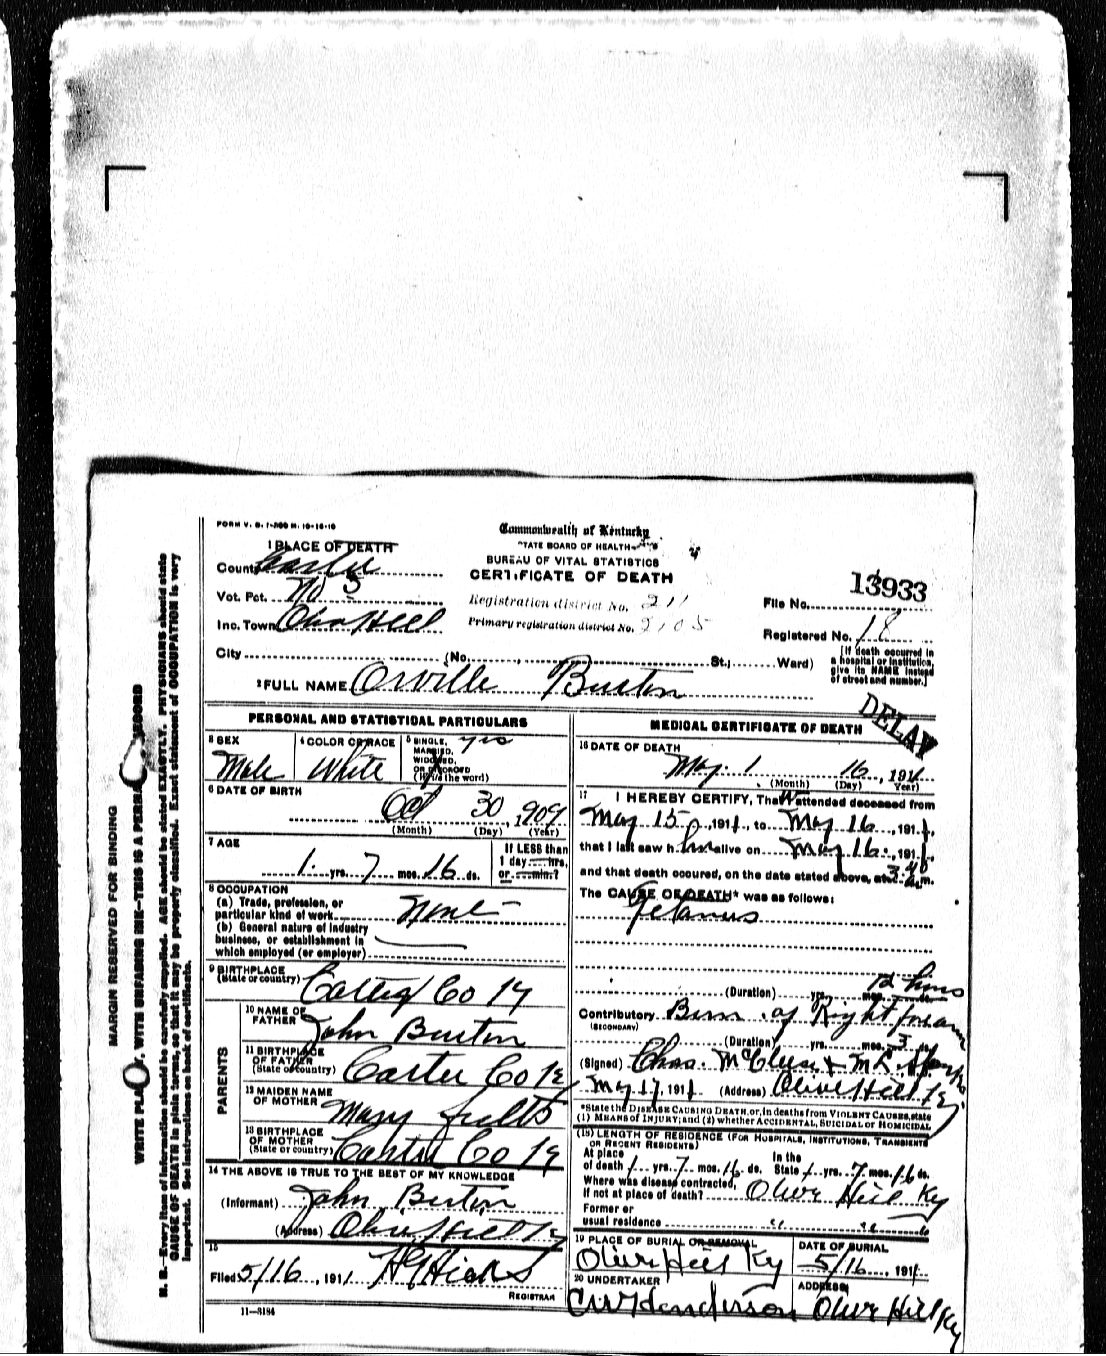 FORM V. S. 1-200 M. 10-18-10
Commonwealth of Kentucky
TATE BOARD OF HEALTH
BUREAU OF VITAL STATISTICS
CERTIFICATE OF DEATH
1 PLACE OF DEATH
County Carter
Vot. Pct. No 5
Inc. Town Olive Hill
City (No. , St.; Ward)
Registration district No. 211
Primary registration district No. 2105
13933
File No.
Registered No. 18
[If death occurred in
a hospital or institution,
give its NAME instead
of street and number.]
2 FULL NAME Orville Burton
DELAY
PERSONAL AND STATISTICAL PARTICULARS
3 SEX
Male
4 COLOR OR RACE
White
5 SINGLE, yes
MARRIED,
WIDOWED,
OR DIVORCED
(Write the word)
6 DATE OF BIRTH
Oct 30 , 1909
(Month) (Day) (Year)
7 AGE
1 yrs. 7 mos. 16 ds.
If LESS than
1 day hrs.
or min.?
8 OCCUPATION
(a) Trade, profession, or
particular kind of work None
(b) General nature of industry
business, or establishment in
which employed (or employer)
9 BIRTHPLACE
(State or country) Carter Co Ky
PARENTS
10 NAME OF
FATHER John Burton
11 BIRTHPLACE
OF FATHER
(State or country) Carter Co Ky
12 MAIDEN NAME
OF MOTHER Mary Fults
13 BIRTHPLACE
OF MOTHER
(State or country) Carter Co Ky
14 THE ABOVE IS TRUE TO THE BEST OF MY KNOWLEDGE
(Informant) John Burton
(Address) Olive Hill Ky
15
Filed 5/16 , 1911 H G Hicks
REGISTRAR
11-3184
MEDICAL CERTIFICATE OF DEATH
16 DATE OF DEATH
May 16 , 1911
(Month) (Day) (Year)
17 I HEREBY CERTIFY, That W attended deceased from
May 15 , 1911, to May 16 , 1911,
that I last saw him alive on May 16 , 1911,
and that death occured, on the date stated above, at 3:40 m.
The CAUSE OF DEATH* was as follows:
Tetanus
(Duration) yrs. mos. 12 hours
Contributory Burn of Right forearm
(SECONDARY)
(Duration) yrs. mos. 3
(Signed) Chas. & M L
May 17, 1911 (Address) Olive Hill Ky
*State the DISEASE CAUSING DEATH, or, in deaths from VIOLENT CAUSES, state
(1) MEANS OF INJURY; and (2) whether ACCIDENTAL, SUICIDAL or HOMICIDAL
(18) LENGTH OF RESIDENCE (FOR HOSPITALS, INSTITUTIONS, TRANSIENTS
OR RECENT RESIDENTS)
At place In the
of death 1 yrs. 7 mos. 16 ds. State 1 yrs. 7 mos. 16 ds.
Where was disease contracted,
If not at place of death? Olive Hill Ky
Former or
usual residence " " "
19 PLACE OF BURIAL OR REMOVAL
Olive Hill Ky
DATE OF BURIAL
5/16 , 1911
20 UNDERTAKER
C W Henderson
ADDRESS
Olive Hill Ky
MARGIN RESERVED FOR BINDING
WRITE PLA , WITH UNFADING INK—THIS IS A PERMA RECORD
N. B.—Every item of information should be carefully supplied. AGE should be stated EXACTLY. PHYSICIANS should state
CAUSE OF DEATH in plain terms, so that it may be properly classified. Exact statement of OCCUPATION is very
important. See instructions on back of certificate.